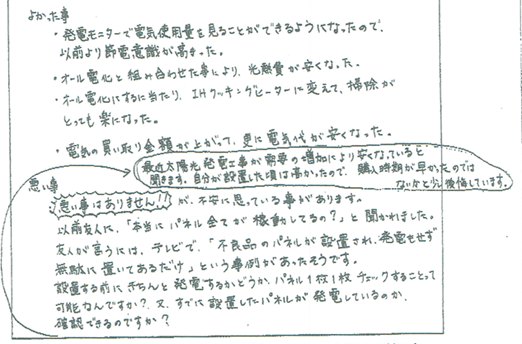 よかった事
・発電モニターで電気使用量を見ることができるようになったので、
以前より節電意識が高まった。
・オール電化と組み合わせた事により、光熱費が安くなった.
・オール電化にするに当たり、IHクッキングヒーターに変えて、掃除が
とっても楽になった。
・電気の買い取り金額が上がって、更に電気代が安くなった。
最近太陽光発電工事が需要の増加により安くなっていると
聞きます。自分が設置した頃は高かったので、購入時期が早かったのでは
ないかと少し後悔しています。
悪い事
悪い事はありません!! が、不安に思っている事があります。
以前友人に、「本当にパネル全てが稼動してるの?」と聞かれました。
友人が言うには、テレビで、「不良品のパネルが設置され、発電をせず
無駄に置いてあるだけ」という事例があったそうです。
設置する前にきちんと発電するかどうか、パネル1枚1枚チェックすることって
可能なんですか?、又、すでに設置したパネルが発電しているのか、
確認できるのですか?